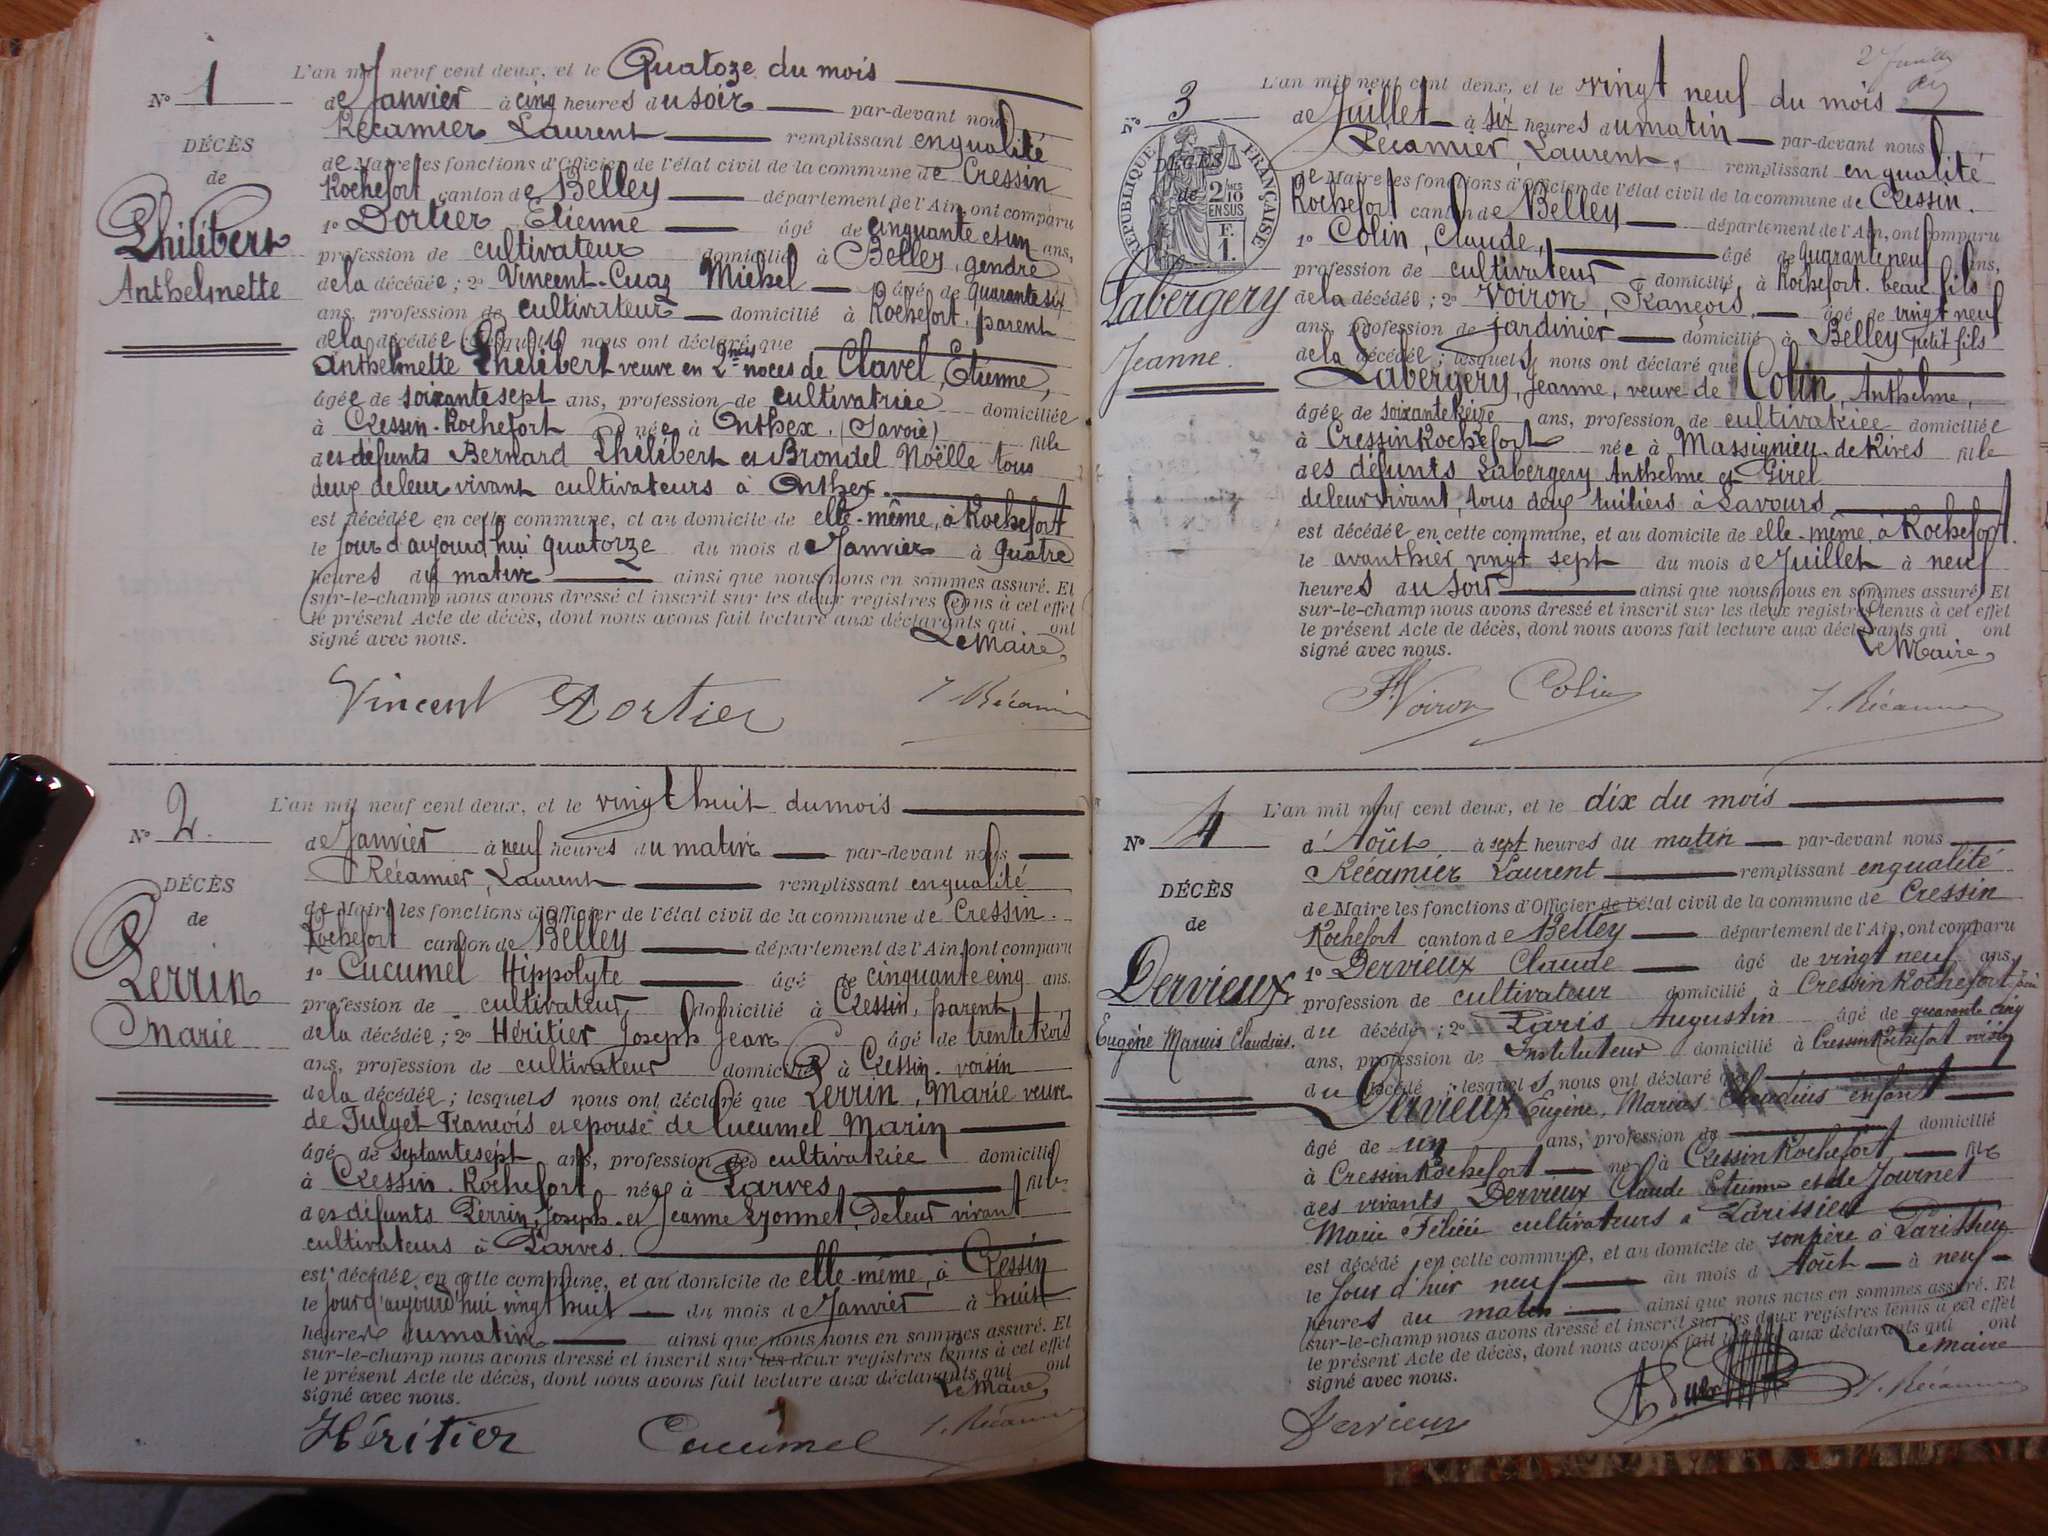 N° 1
DÉCÈS
de
Philibert
Anthelmette
L'an mil neuf cent deux, et le Quatoze du mois
de Janvier à cinq heures du soir par-devant nous
Récamier Laurent remplissant en qualité
de Maire les fonctions d'Officier de l'état civil de la commune de Cressin
Rochefort canton de Belley département de l'Ain, ont comparu
1° Dortier Etienne âgé de cinquante et un ans,
profession de cultivateur domicilié à Belley, gendre
de la décédée ; 2° Vincent-Cuaz Michel âgé de quarante six
ans, profession de cultivateur domicilié à Rochefort, parent
de la décédée lesquels nous ont déclaré que
Anthelmette Philibert veuve en 2mes noces de Clavel, Etienne,
âgée de soixante sept ans, profession de cultivatrice domiciliée
à Cressin-Rochefort née à Onthex, (Savoie) fille
des défunts Bernard Philibert et Brondel Noëlle tous
deux de leur vivant cultivateurs à Onthex.
est décédée en cette commune, et au domicile de elle-même, à Rochefort
le jour d'aujourd'hui quatorze du mois de Janvier à quatre
heures du matin ainsi que nous nous en sommes assuré. Et
sur-le-champ nous avons dressé et inscrit sur les deux registres tenus à cet effet
le présent Acte de décès, dont nous avons fait lecture aux déclarants qui ont
signé avec nous.
Le Maire,
Vincent Dortier L. Récamier
N° 2.
DÉCÈS
de
Perrin
Marie
L'an mil neuf cent deux, et le vingt huit du mois
de Janvier à neuf heures du matin par-devant nous
Récamier, Laurent remplissant en qualité
de Maire les fonctions d'Officier de l'état civil de la commune de Cressin-
Rochefort canton de Belley département de l'Ain, ont comparu
1° Cucumel Hippolyte âgé de cinquante cinq ans.
profession de cultivateur, domicilié à Cressin, parent
de la décédée ; 2° Héritier Joseph Jean âgé de trente trois
ans, profession de cultivateur domicilié à Cressin, voisin
de la décédée ; lesquels nous ont déclaré que Perrin, Marie veuve
de Tulget François et épouse de Cucumel Marin
âgé de septante sept ans, profession de cultivatrice domicilié
à Cressin-Rochefort née à Parves fille
des défunts Perrin, Joseph et Jeanne Lyonnet, de leur vivant
cultivateurs à Parves.
est décédée en cette commune, et au domicile de elle-même, à Cressin
le jour d'aujourd'hui vingt huit du mois de Janvier à huit
heures du matin ainsi que nous nous en sommes assuré. Et
sur-le-champ nous avons dressé et inscrit sur les deux registres tenus à cet effet
le présent Acte de décès, dont nous avons fait lecture aux déclarants qui ont
signé avec nous.
Le Maire,
Héritier Cucumel L. Récamier
N° 3
DÉCÈS
de
RÉPUBLIQUE FRANÇAISE
2/10
EN SUS
F.
1.
Labergery
Jeanne.
L'an mil neuf cent deux, et le vingt neuf du mois
de Juillet à six heures du matin par-devant nous
Récamier, Laurent, remplissant en qualité
de Maire les fonctions d'Officier de l'état civil de la commune de Cressin-
Rochefort canton de Belley département de l'Ain, ont comparu
1° Colin, Claude, âgé de quarante neuf ans,
profession de cultivateur domicilié à Rochefort, beau fils
de la décédée ; 2° Voiron, François, âgé de vingt neuf
ans, profession de jardinier domicilié à Belley petit fils
de la décédée ; lesquels nous ont déclaré que
Labergery, Jeanne, veuve de Colin, Anthelme,
âgée de soixante treize ans, profession de cultivatrice domiciliée
à Cressin Rochefort née à Massignieu-de Rives fille
des défunts Labergery Anthelme et Girel
de leur vivant, tous deux tuiliers à Lavours
est décédée en cette commune, et au domicile de elle-même, à Rochefort.
le avant hier vingt sept du mois de Juillet à neuf
heures du soir ainsi que nous nous en sommes assuré. Et
sur-le-champ nous avons dressé et inscrit sur les deux registres tenus à cet effet
le présent Acte de décès, dont nous avons fait lecture aux déclarants qui ont
signé avec nous.
Le Maire,
F. Voiron Colin L. Récamier
N° 4
DÉCÈS
de
Dervieux
Eugène Marius Claudius.
L'an mil neuf cent deux, et le dix du mois
d'Août à sept heures du matin par-devant nous
Récamier Laurent remplissant en qualité
de Maire les fonctions d'Officier de l'état civil de la commune de Cressin
Rochefort canton de Belley département de l'Ain, ont comparu
1° Dervieux Claude âgé de vingt neuf ans,
profession de cultivateur domicilié à Cressin Rochefort père
du décédé ; 2° Paris Augustin âgé de quarante cinq
ans, profession de Instituteur domicilié à Cressin Rochefort voisin
du décédé lesquels nous ont déclaré que
Dervieux Eugène, Marius Claudius enfant
âgé de un ans, profession de domicilié
à Cressin Rochefort né à Cressin Rochefort fils
des vivants Dervieux Claude Etienne et de Journet
Marie Félicie cultivateurs à Parissieu
est décédé en cette commune, et au domicile de son père à Parissieu
le jour d'hier neuf du mois d'Août à neuf
heures du matin ainsi que nous nous en sommes assuré. Et
sur-le-champ nous avons dressé et inscrit sur les deux registres tenus à cet effet
le présent Acte de décès, dont nous avons fait lecture aux déclarants qui ont
signé avec nous.
Le Maire
Dervieux L. Récamier